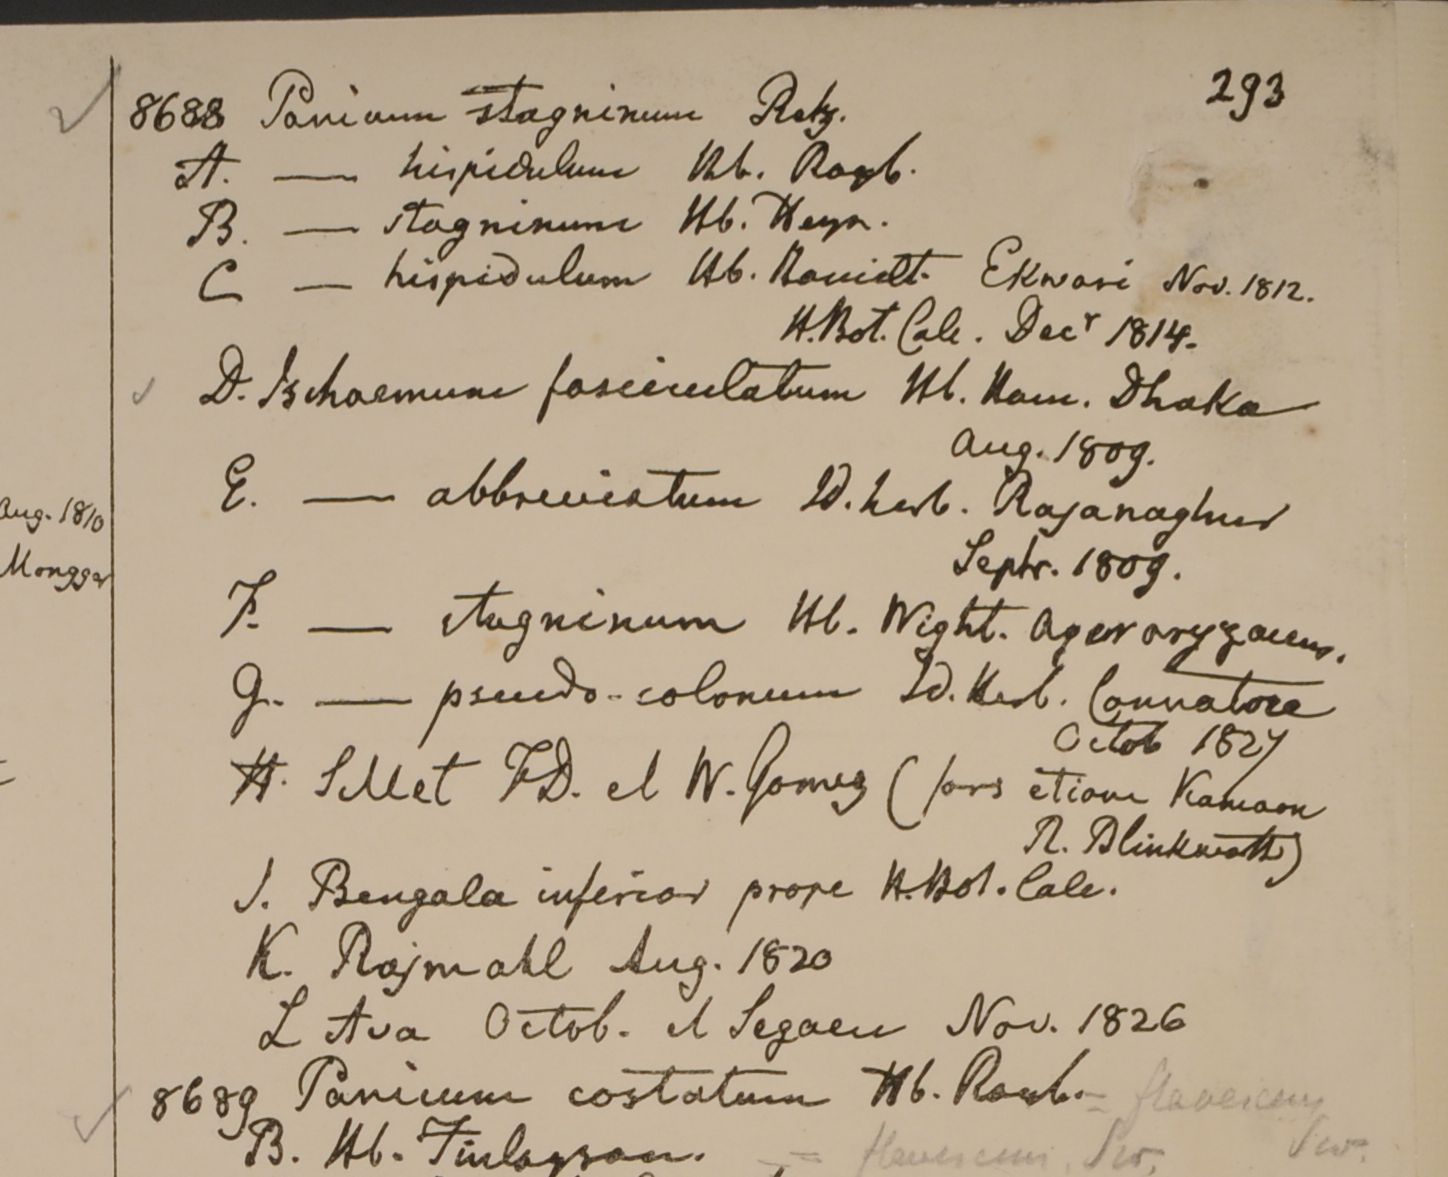 293
8688 Panicum stagninum Retz.
A. — hispidulum Hb. Roxb.
B. — stagninum Hb. Heyn.
C — hispidulum Hb. Ekwari Nov. 1812.
H. Bot. Calc. Decr 1814.
D. Ischaemum fasciculatum Hb. Ham. Dhaka
Aug. 1809.
E. — abbreviatum Id. herb. Rajanaghur
Septr. 1809.
Aug. 1810
F. — stagninum Hb. Wight. Ager oryzaceus.
G. — pseudo-colonum Id. Herb.
Octob 1827
H. Sillet F.D. et W. Gomez (fors etiam Kamaon
R. Blinkworth)
I. Bengala inferior prope H. Bot. Calc.
K. Rajmahl Aug. 1820
L Ava Octob. et Segaen Nov. 1826
8689 Panicum costatum Hb. Roxb. = flavescens
Sw.
B. Hb. Finlayson. — = flavescens. Sw.